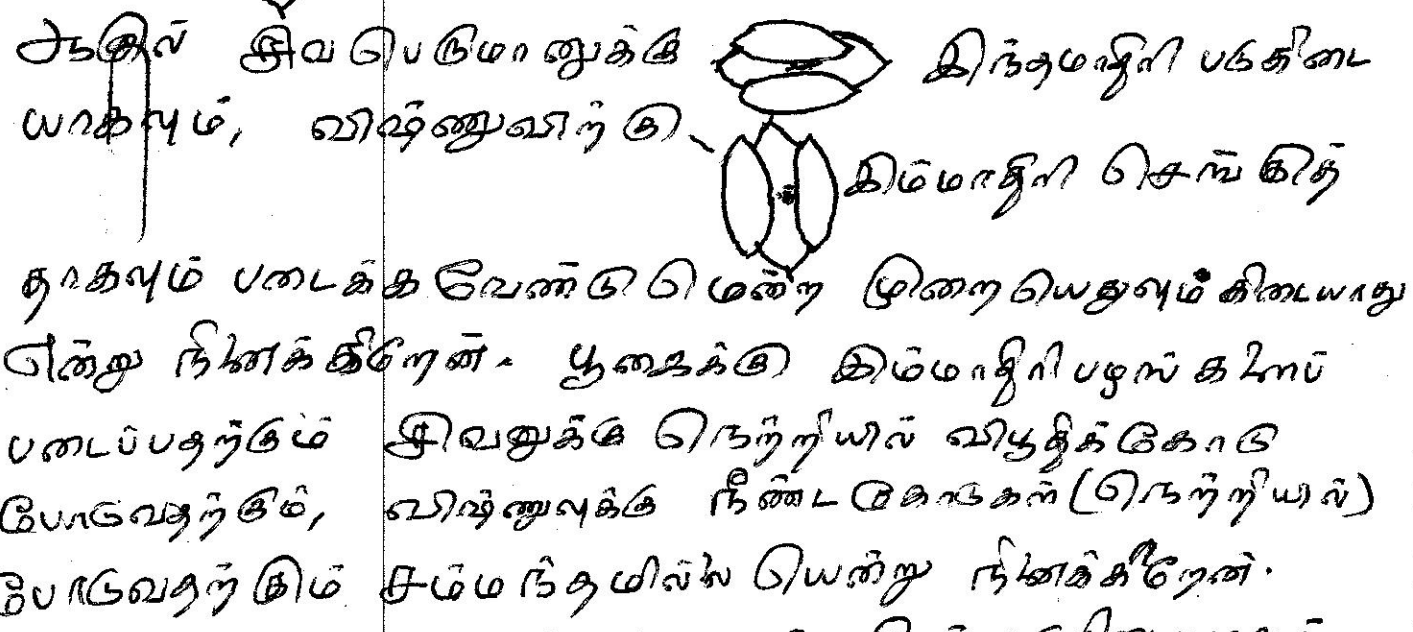 ஆகுல் சிவபெருமானுக்கு இந்தமாதிரி படுகிடை
யாகவும், விஷ்ணுவிற்கு
இம்மாதிரி செங்குத்
தாகவும் படைக்கவேண்டுமென்ற முறையெதுவும் கிடையாது
என்று நினைக்கிறேன். பூஜைக்கு இம்மாதிரி பழங்களைப்
படைப்பதற்கும் சிவனுக்கு நெற்றியில் விபூதிக்கோடு
போடுவதற்கும், விஷ்ணுவுக்கு நீண்ட கோடுகள் (நெற்றியில்)
போடுவதற்கும் சம்மந்தமில்லை யென்று நினைக்கிறேன்.